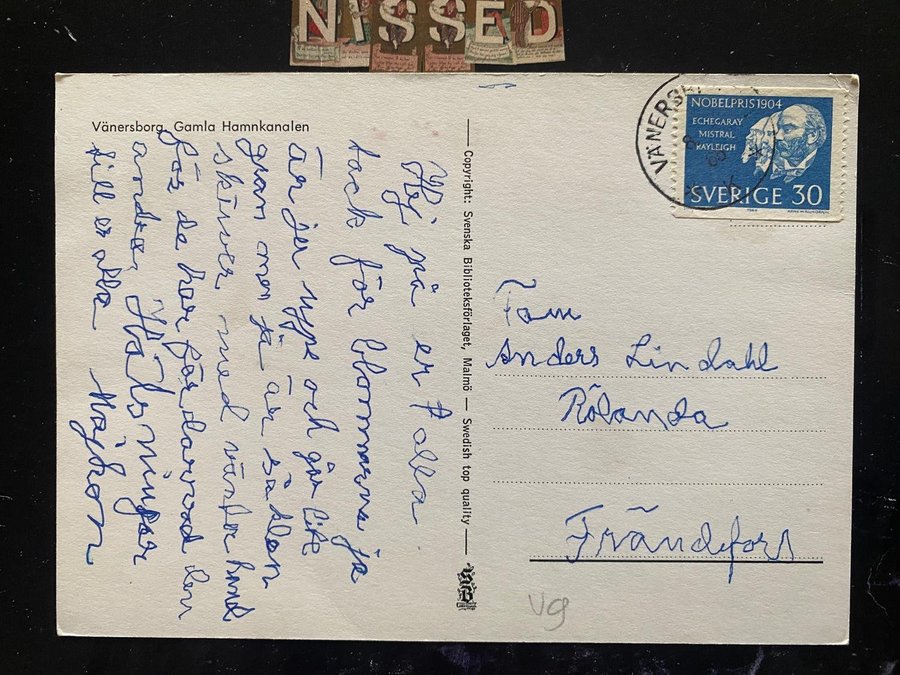 NISSED
Vänersborg. Gamla Hamnkanalen
Hej på er alla
tack för blommorna ja
är jer uppe och går lite
gran men ja är så klen
skriver med vänster hand
för de har
andra, Hälsningar
till er alla Majken
Copyright: Svenska Biblioteksförlaget, Malmö — Swedish top quality
VÄNERSB
NOBELPRIS 1904
ECHEGARAY
MISTRAL
RAYLEIGH
SVERIGE 30
Fam
Anders Lindahl
Rölanda
Frändefors
Vg